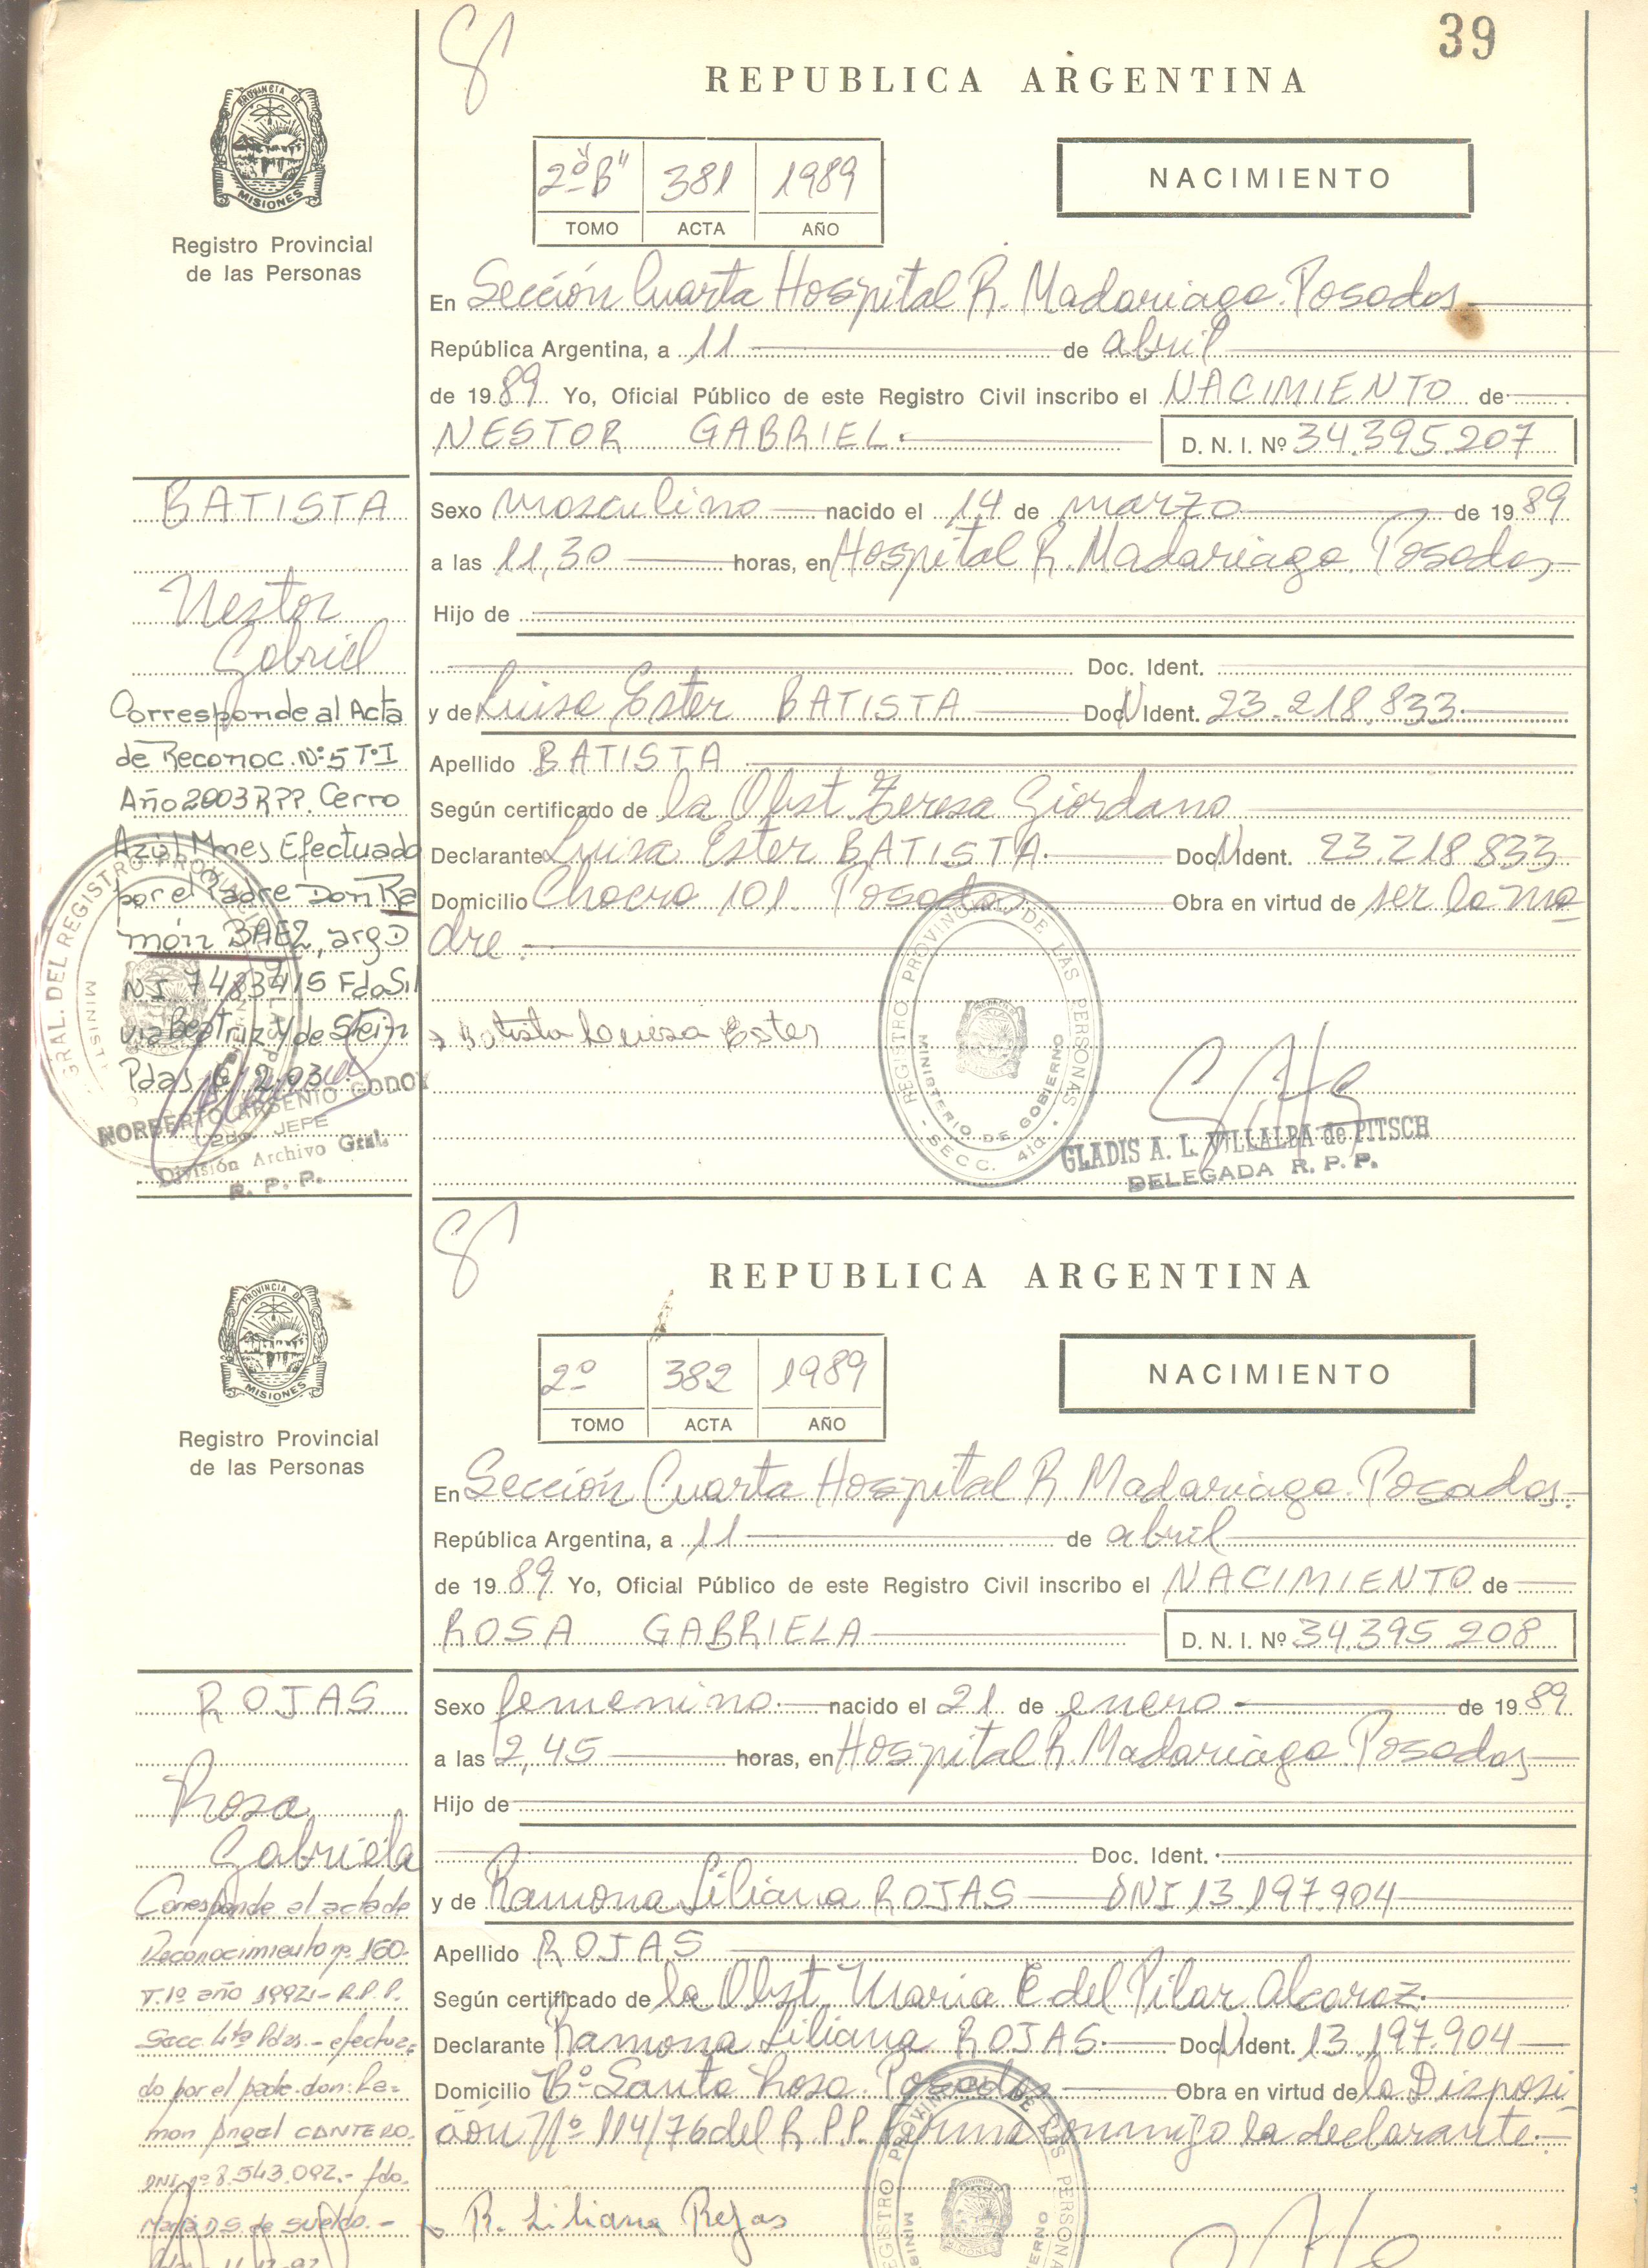 39
REPUBLICA ARGENTINA
PROVINCIA DE
MISIONES
Registro Provincial
de las Personas
2º "B" 381 1989
TOMO ACTA AÑO
NACIMIENTO
En Sección Cuarta Hospital R. Madariaga. Posadas
República Argentina, a 11 de abril
de 1989 Yo, Oficial Público de este Registro Civil inscribo el NACIMIENTO de
NESTOR GABRIEL. D. N. I. Nº 34.395.207
BATISTA
Nestor
Gabriel
Corresponde al Acta
de Reconoc. Nº 5 Tº I
Año 2003 R.P.P. Cerro
Azúl Mnes Efectuado
por el Padre Don Ra
món BAEZ, arg D
NI 7483415 Fdo Sil
via Beatriz Y de Stein
Pdas 2.03.
NORBERTO ARSENIO GODOY
2do. JEFE
División Archivo Gral.
R. P. P.
Sexo masculino nacido el 14 de marzo de 1989
a las 11,30 horas, en Hospital R. Madariaga. Posadas
Hijo de
Doc. Ident.
y de Luisa Ester BATISTA Doc. Ident. 23.218.833
Apellido BATISTA
Según certificado de la Obst. Teresa Giordano
Declarante Luisa Ester BATISTA. Doc. Ident. 23.218.833
Domicilio Chacra 101. Posadas Obra en virtud de ser la ma
dre.
Batista Luisa Ester
REGISTRO PROVINCIAL DE LAS PERSONAS
MINISTERIO DE GOBIERNO
SECC. 4ta.
GLADIS A. L. VILLALBA de PITSCH
DELEGADA R. P. P.
REPUBLICA ARGENTINA
PROVINCIA DE
MISIONES
Registro Provincial
de las Personas
2º 382 1989
TOMO ACTA AÑO
NACIMIENTO
En Sección Cuarta Hospital R Madariaga. Posadas.
República Argentina, a 11 de abril
de 1989 Yo, Oficial Público de este Registro Civil inscribo el NACIMIENTO de
ROSA GABRIELA D. N. I. Nº 34.395.208
ROJAS
Rosa
Gabriela
Corresponde al acta de
Reconocimiento nº 160.
T. 1º año 1992 - R.P.P.
Secc. 4ta Pdas. - efectua=
do por el padre don: Ra=
mon Angel CANTERO.
DNI nº 8.543.092.- fdo.
Maria D S. de Sueldo.-
Sexo femenino. nacido el 21 de enero de 1989
a las 2,45 horas, en Hospital R. Madariaga Posadas
Hijo de
Doc. Ident.
y de Ramona Liliana ROJAS DNI 13.197.904
Apellido ROJAS
Según certificado de la Obst. Maria E del Pilar Alcaraz.
Declarante Ramona Liliana ROJAS. Doc. Ident. 13.197.904
Domicilio Bº Santa Rosa. Posadas Obra en virtud de la Disposi
ción Nº 114/76 del R.P.P. Firma conmigo la declarante.
R. Liliana Rojas